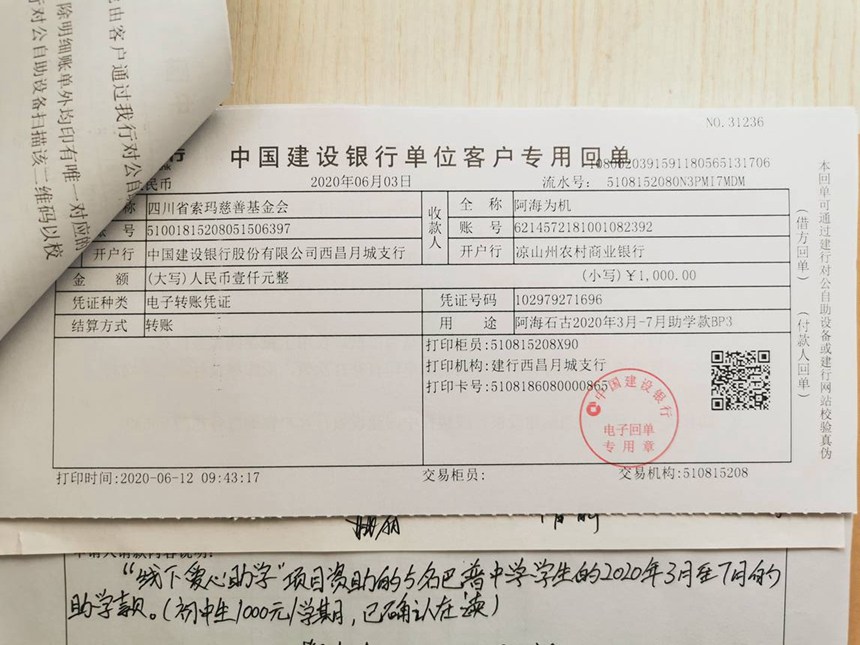 由客户通过我行对公自
除明细账单外均印有唯一对应的
行对公自助设备扫描该二维码以校
NO.31236
中国建设银行单位客户专用回单
1080020391591180565131706
民币
2020年06月03日
流水号: 5108152080N3PMI7MDM
称 四川省索玛慈善基金会
收款人
全 称 阿海为机
账 号 51001815208051506397
账 号 6214572181001082392
开户行 中国建设银行股份有限公司西昌月城支行
开户行 凉山州农村商业银行
金 额 (大写)人民币壹仟元整
(小写)¥1,000.00
凭证种类 电子转账凭证
凭证号码 102979271696
结算方式 转账
用 途 阿海石古2020年3月-7月助学款BP3
打印柜员:510815208X90
打印机构:建行西昌月城支行
打印卡号:5108186080000865
中国建设银行
电子回单
专用章
打印时间:2020-06-12 09:43:17
交易柜员:
交易机构:510815208
本回单可通过建行对公自助设备或建行网站校验真伪
(借方回单)
(付款人回单)
申请人请款内容说明:
“线下爱心助学”项目资助的5名巴普中学学生的2020年3月至7月的
助学款。(初中生1000元/学期,已确认在读)